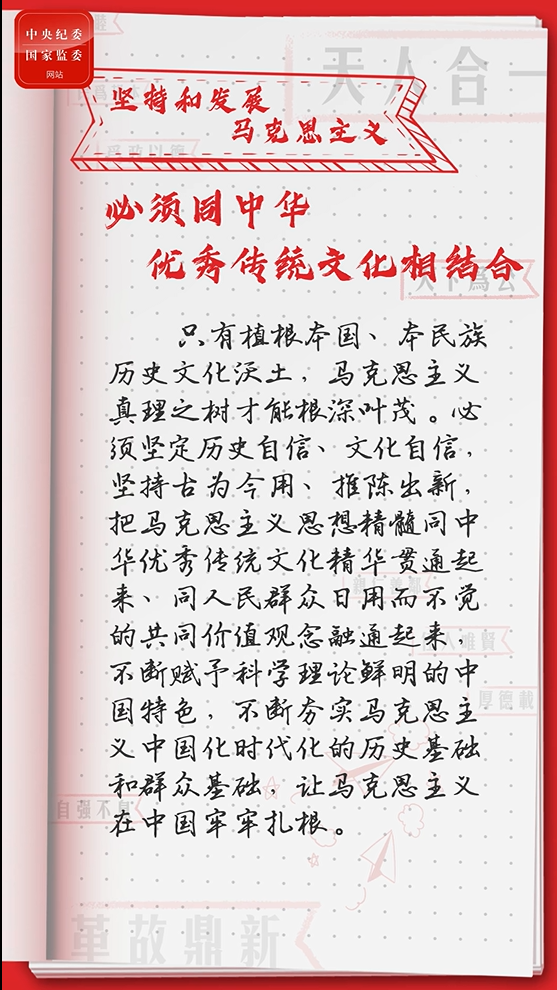 中央纪委
国家监委
网站
天人合一
为政以德
坚持和发展
马克思主义
必须同中华
优秀传统文化相结合
天下為公
只有植根本国、本民族
历史文化沃土，马克思主义
真理之树才能根深叶茂。必
须坚定历史自信、文化自信，
坚持古为今用、推陈出新，
把马克思主义思想精髓同中
华优秀传统文化精华贯通起
来、同人民群众日用而不觉
的共同价值观念融通起来，
不断赋予科学理论鲜明的中
国特色，不断夯实马克思主
义中国化时代化的历史基础
和群众基础，让马克思主义
在中国牢牢扎根。
任人唯賢
厚德載
自强不息
革故鼎新